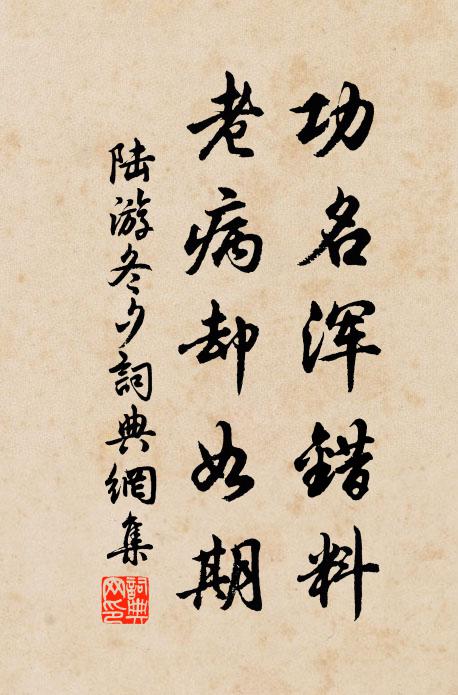 功名浑錯料
老病却如期
陆游冬夕詞典網集
詞典网印